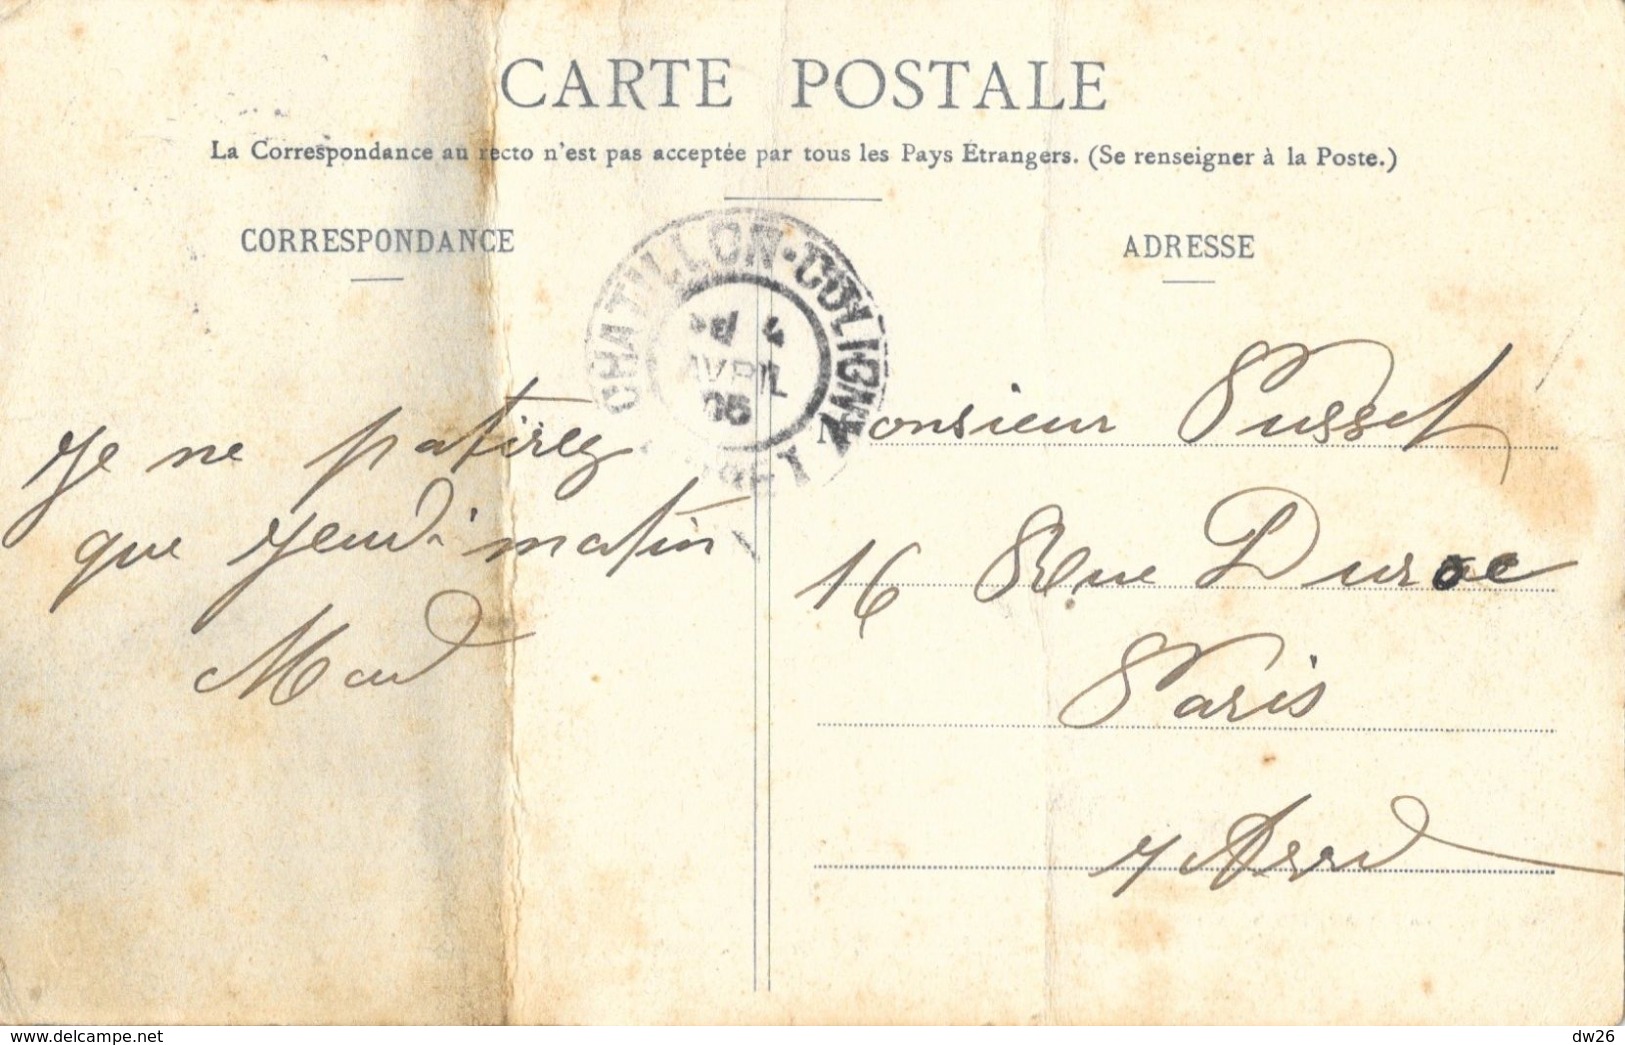 CARTE POSTALE
La Correspondance au recto n'est pas acceptée par tous les Pays Etrangers. (Se renseigner à la Poste.)
CORRESPONDANCE
ADRESSE
CHATILLON-COLIGNY
AVRIL
Je ne patirez
que jeudi matin
Monsieur Pusset
16 Rue Duroc
Paris
7 Arrd
delcampe.net
dw26